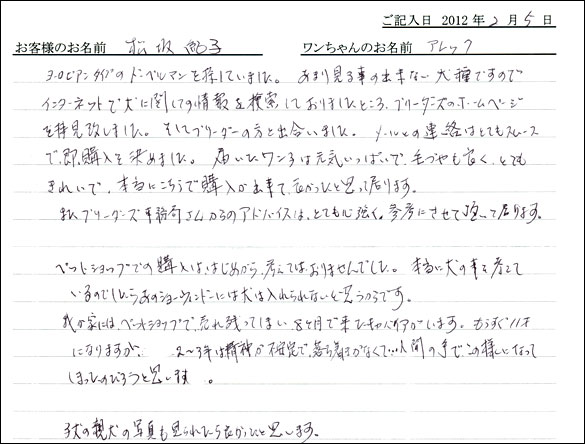 ご記入日 2012年2月5日
お客様のお名前 松坂 ワンちゃんのお名前 アレック
ヨーロピアンタイプのドーベルマンを探していました。あまり見る事の出来ない犬種ですので
インターネットで犬に関しての情報を検索しておりましたところ、ブリーダーズのホームページ
を拝見致しました。そしてブリーダーの方と出合いました。メールでの連絡はとてもスムース
で、即購入を決めました。届いたワン子は元気いっぱいで、毛づやも良く、とても
きれいで、本当にこちらで購入が出来て良かったと思って居ります。
またブリーダーズ事務局さんからのアドバイスは、とても心強く、参考にさせて頂いて居ります。
ペットショップでの購入は、はじめから、考えてはおりませんでした。本当に犬の事を考えて
いるのでしたらあのショーウィンドーには犬は入れられないと思うからです。
我が家には、ペットショップで、売れ残ってしまい8ヶ月で来たキャバリアがいます。もうすぐ11才
になりますが、2〜3年は精神が不安定で、落ち着きがなくて…人間の手で、この様になって
しまったのだろうと思います。
子犬の親犬の写真も見られたら良かったと思います。